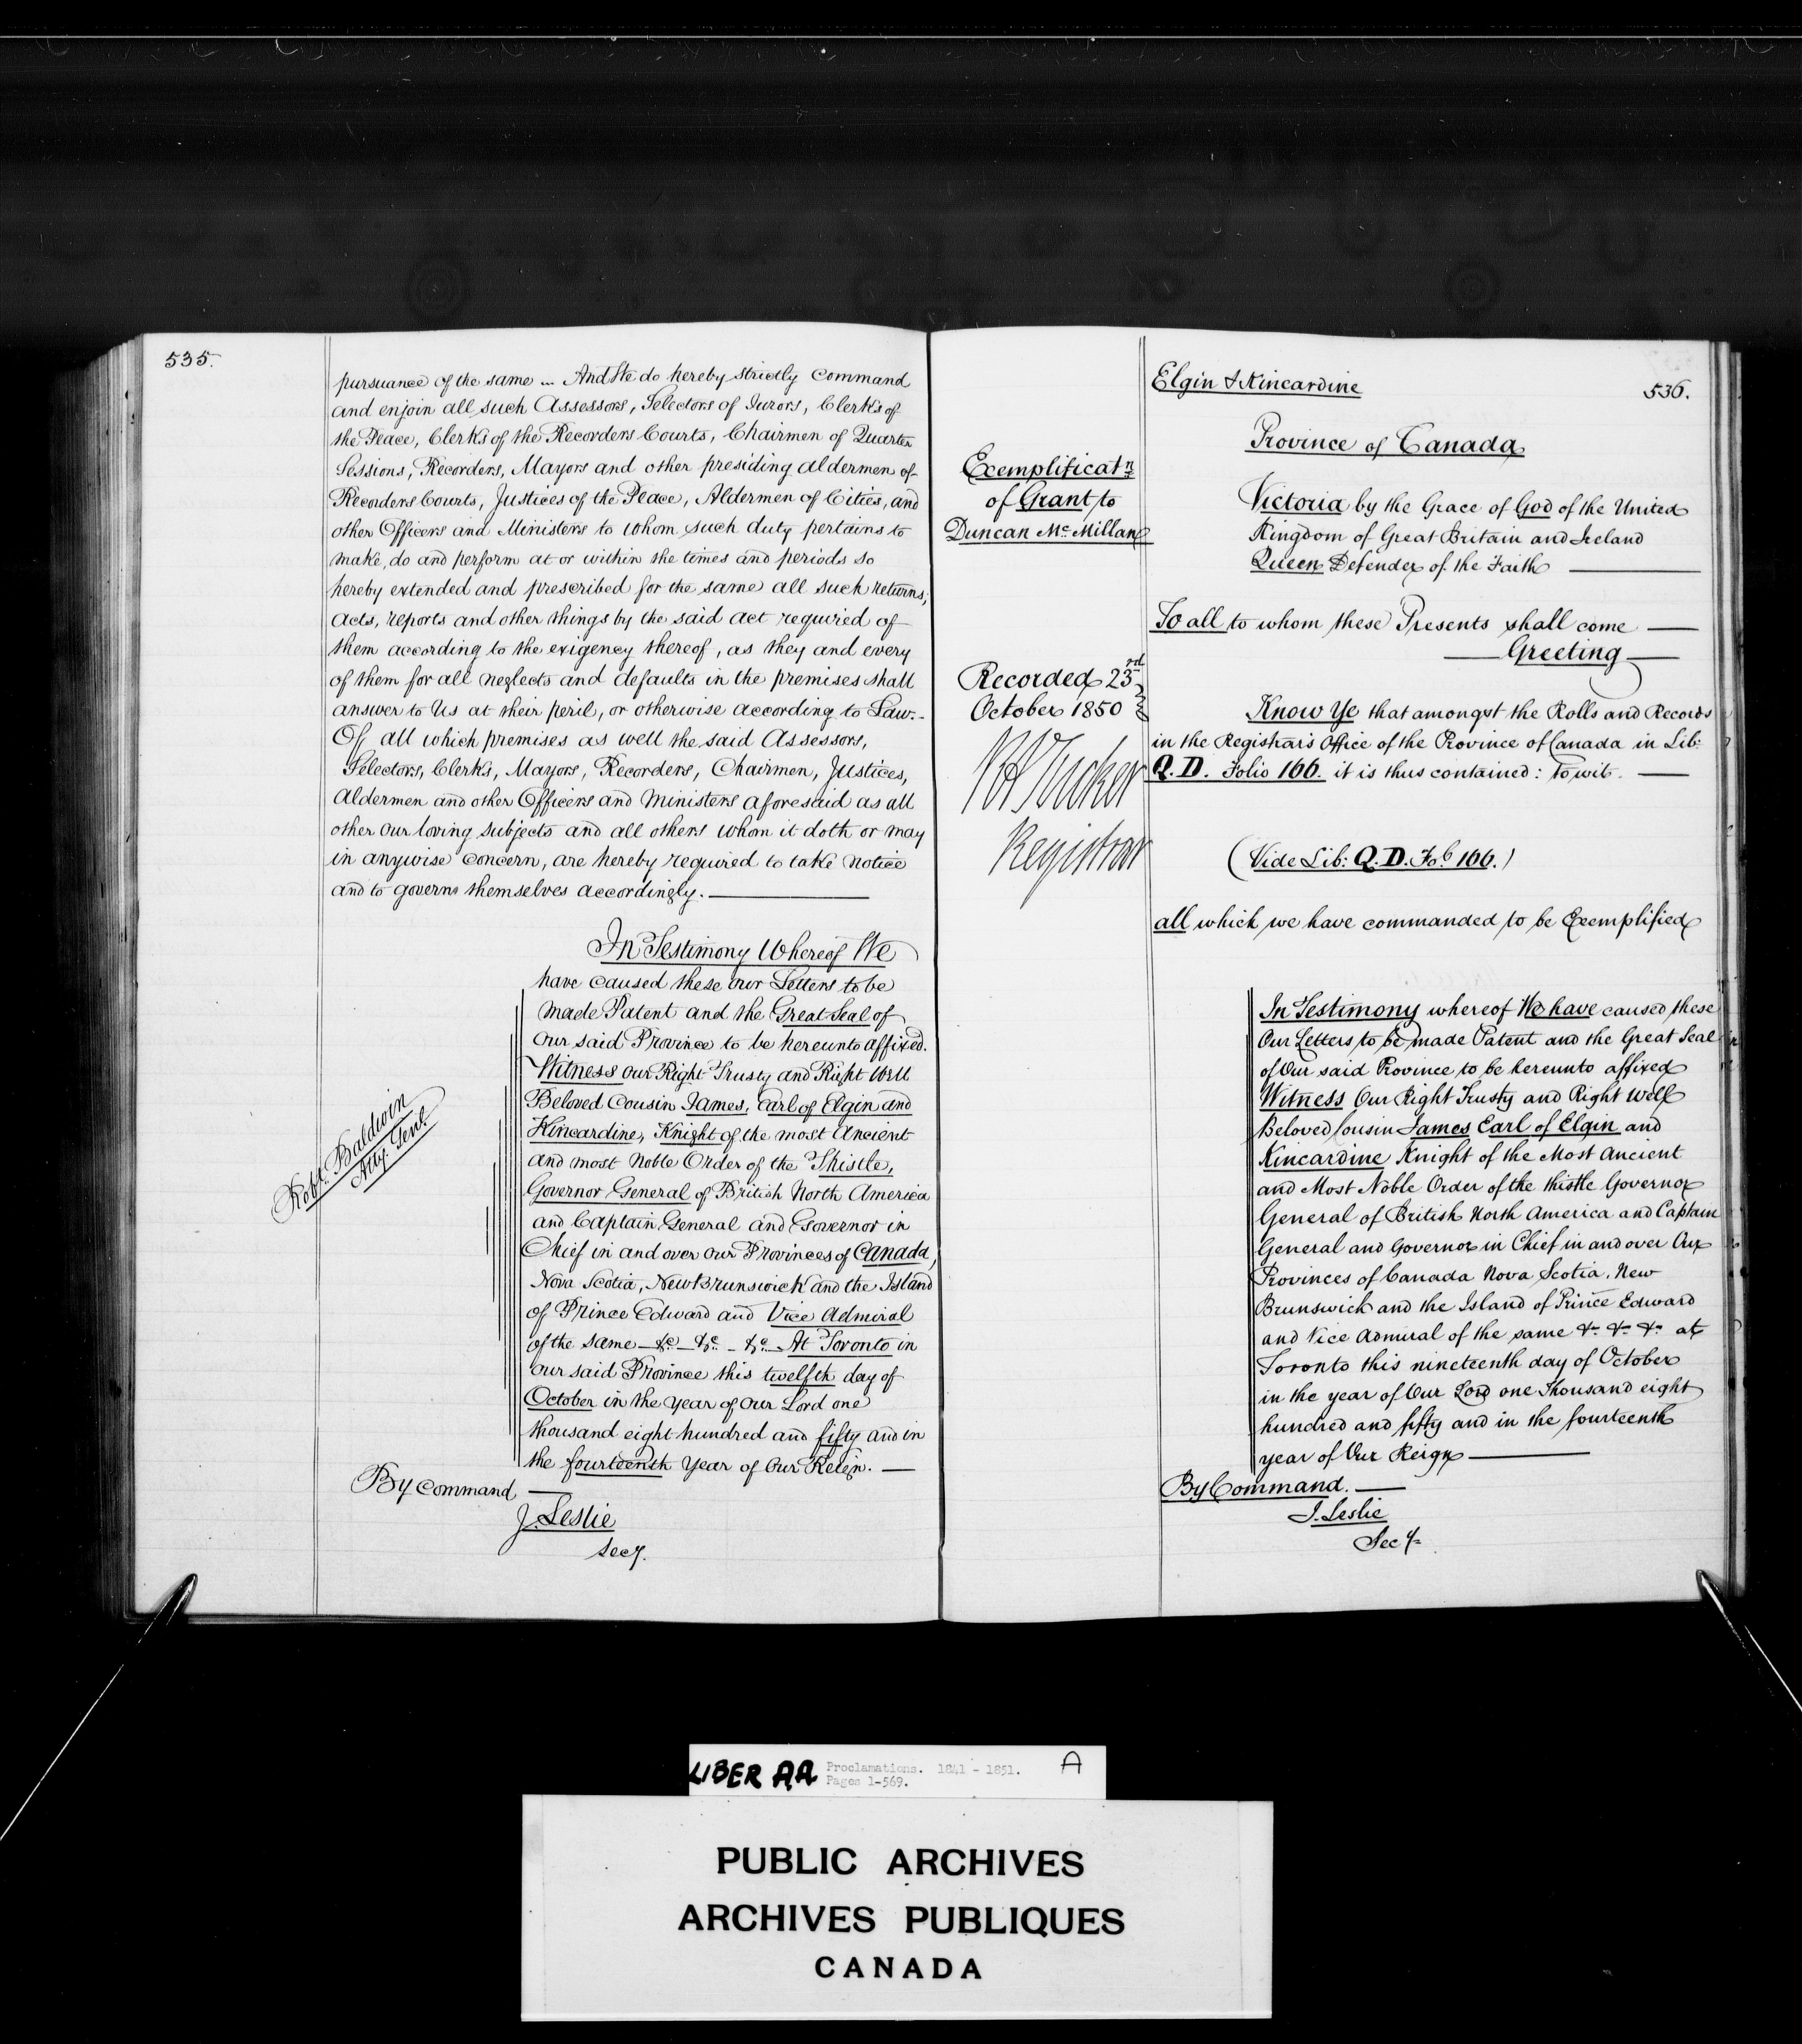 535.
pursuance of the same ... And We do hereby strictly command
and enjoin all such Assessors, Selectors of Jurors, Clerks of
the Peace, Clerks of the Recorders Courts, Chairmen of Quarter
Sessions, Recorders, Mayors and other presiding Aldermen of
Recorders Courts, Justices of the Peace, Aldermen of Cities, and
other Officers and Ministers to whom such duty pertains to
make, do and perform at or within the times and periods so
hereby extended and prescribed for the same all such returns,
acts, reports and other things by the said act required of
them according to the exigency thereof, as they and every
of them for all neglects and defaults in the premises shall
answer to Us at their peril, or otherwise according to Law.
Of all which premises as well the said Assessors,
Selectors, Clerks, Mayors, Recorders, Chairmen, Justices,
Aldermen and other Officers and Ministers aforesaid as all
other our loving subjects and all others whom it doth or may
in anywise concern, are hereby required to take notice
and to govern themselves accordingly.
In Testimony Whereof We
have caused these our Letters to be
made Patent and the Great Seal of
our said Province to be hereunto affixed.
Witness our Right Trusty and Right Well
Beloved Cousin James, Earl of Elgin and
Kincardine, Knight of the most Ancient
and most Noble Order of the Thistle,
Governor General of British North America
and Captain General and Governor in
Chief in and over our Provinces of Canada,
Nova Scotia, New Brunswick and the Island
of Prince Edward and Vice Admiral
of the same - &c - &c - &c - At Toronto in
our said Province this twelfth day of
October in the year of our Lord one
thousand eight hundred and fifty and in
the fourteenth Year of Our Reign.
Robt. Baldwin
Atty. Genl.
By Command
J. Leslie
Secy.
536.
Elgin & Kincardine
Province of Canada
Exemplificatn
of Grant to
Duncan McMillan
Victoria by the Grace of God of the United
Kingdom of Great Britain and Ireland
Queen Defender of the Faith
To all to whom these Presents shall come
Greeting
Recorded 23rd
October 1850
Registrar
Know Ye that amongst the Rolls and Records
in the Registrar's Office of the Province of Canada in Lib:
Q. D. Folio 166. it is thus contained: To wit.
(Vide Lib: Q. D. Fo. 166.)
all which we have commanded to be Exemplified
In Testimony whereof We have caused these
Our Letters to be made Patent and the Great Seal
of Our said Province to be hereunto affixed
Witness Our Right Trusty and Right Well
Beloved Cousin James Earl of Elgin and
Kincardine Knight of the Most Ancient
and Most Noble Order of the Thistle Governor
General of British North America and Captain
General and Governor in Chief in and over Our
Provinces of Canada Nova Scotia, New
Brunswick and the Island of Prince Edward
and Vice Admiral of the same &c &c &c at
Toronto this nineteenth day of October
in the year of Our Lord one thousand eight
hundred and fifty and in the fourteenth
year of Our Reign
By Command.
J. Leslie
Secy
LIBER AA Proclamations. 1841 - 1851. A
Pages 1-569.
PUBLIC ARCHIVES
ARCHIVES PUBLIQUES
CANADA